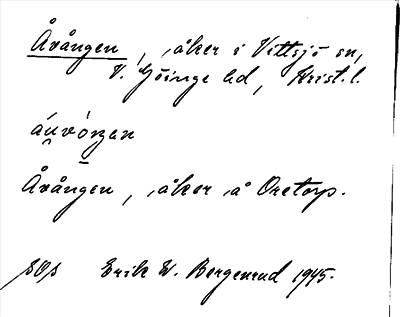 Åvången, åker i Vittsjö sn,
V. Göinge hd, Krist. l.
Åvången, åker å Oretorp.
Erik W. Bergenrud 1945.